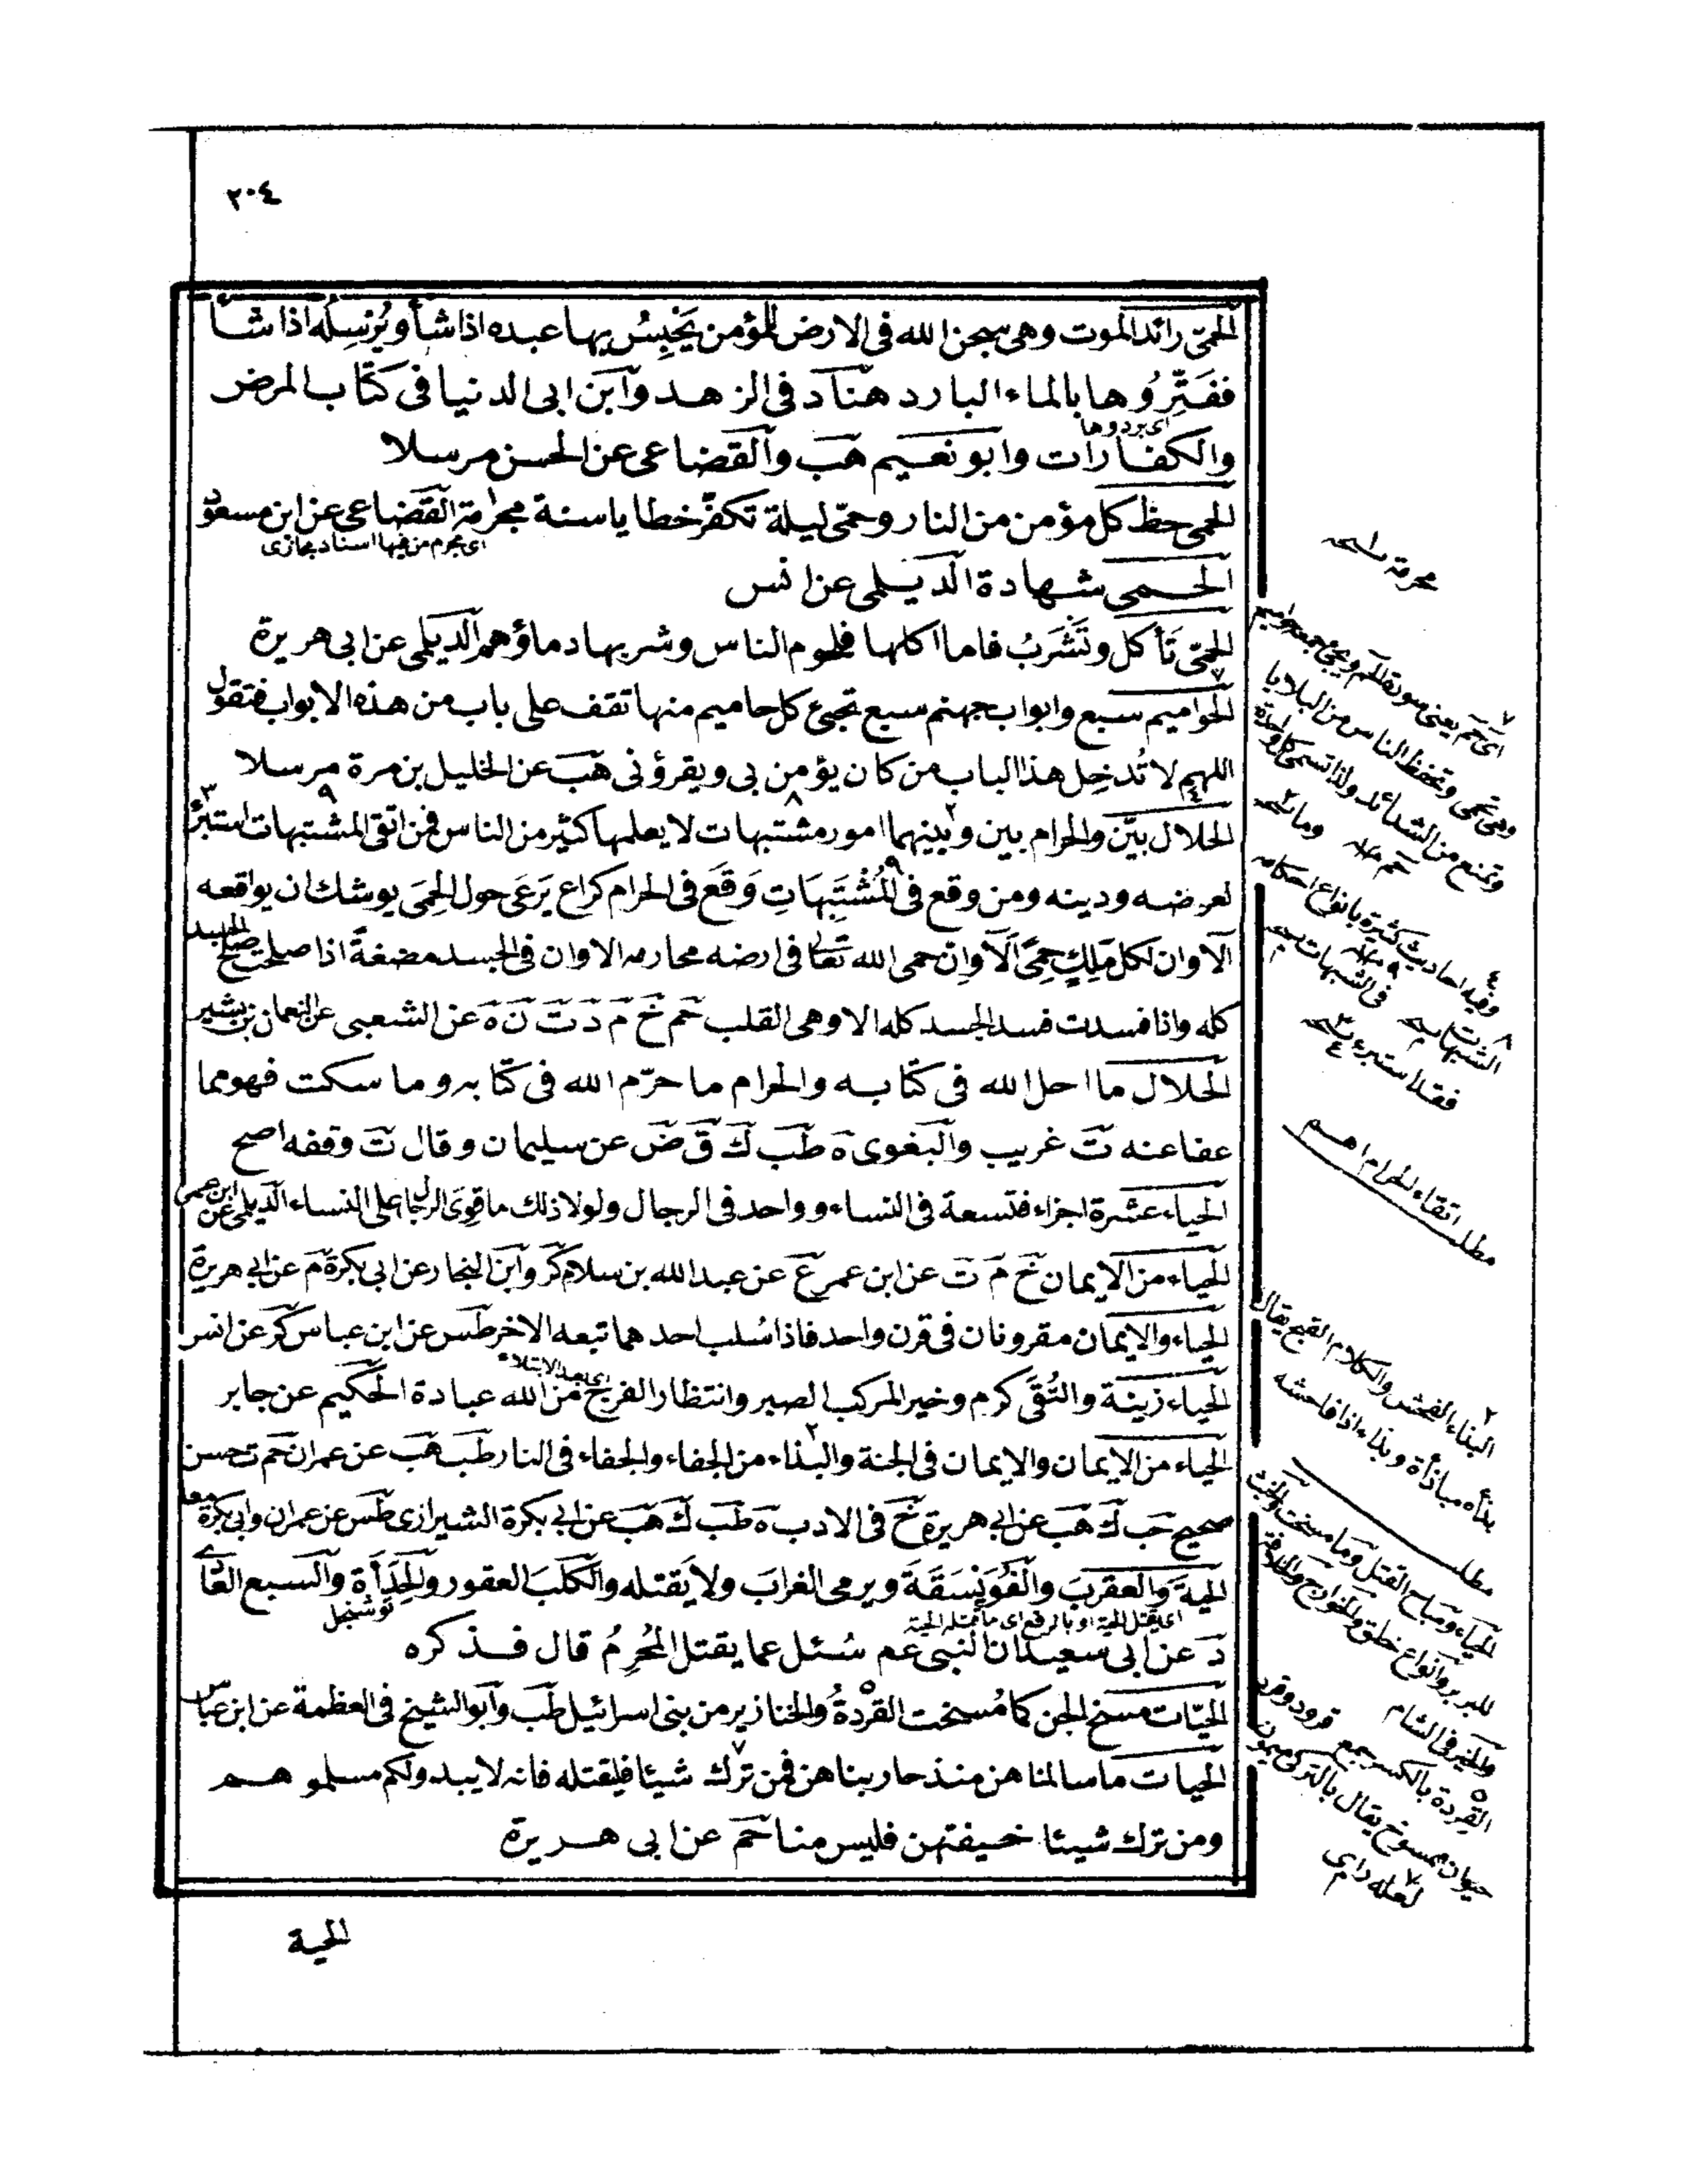 ٢٠٤
الحمى رائد الموت وهى سجن الله فى الارض للمؤمن يَحْبِسُ بها عبده اذا شأ ويُرْسِلُه اذا شأ
ففَتِّرُوها بالماء البارد هناد فى الزهد وابن ابى الدنيا فى كتاب المرض
اى بردوها
والكفارات وابو نعيم هب والقضاعى عن الحسن مرسلا
الحمى حظ كل مؤمن من النار وحمى ليلة تكفّر خطايا سنة مجرمة القضاعى عن ابن مسعود
اى مجرم من فيها اسناد مجازى
الحمى شهادة الديلمى عن انس
الحمى تَأكل وتَشْرَبُ فاما اكلها فلحوم الناس وشربها دماؤهم الديلمى عن ابى هريرة
الحواميم سبع وابواب جهنم سبع تجئ كل حاميم منها تقف على باب من هذه الابواب فتقول
اللهم لا تُدخِل هذا الباب من كان يؤمن بى ويقرؤنى هب عن الخليل بن مرة مرسلا
الحلال بيّن والحرام بين وبينهما امور مشتبهات لا يعلمها كثير من الناس فمن اتقى المشتبهات استبرء
لعرضه ودينه ومن وقع فى المُشْتَبِهَاتِ وَقَعَ فى الحرام كراع يَرعَى حول الحِمَى يوشك ان يواقعه
الا وان لكل مَلِكٍ حِمًى اَلا وان حمى الله تعالى فى ارضه محارمه الا وان فى الجسد مضغةً اذا صلحت صلح الجسد
كله واذا فسدت فسد الجسد كله الا وهى القلب حم خ م د ت ن ه عن الشعبى عن النعمان بن بشير
الحلال ما احل الله فى كتابه والحرام ما حرّم الله فى كتابه وما سكت فهو مما
عفا عنه ت غريب والبغوى ه طب ك ق ض عن سليمان وقال ت وقفه اصح
الحياء عشرة اجزاء فتسعة فى النساء وواحد فى الرجال ولولا ذلك ما قوى الرجال على النساء الديلمى عن ابن عمر
الحياء من الايمان خ م ت عن ابن عمر ع عن عبد الله بن سلام كر وابن النجار عن ابى بكرة م عن ابى هريرة
الحياء والايمان مقرونان فى قرن واحد فاذا سُلب احدهما تبعه الاخر طس عن ابن عباس كر عن انس
الحياء زينة والتُقَى كرم وخير المركب الصبر وانتظار الفرج من الله عبادة الحكيم عن جابر
الحياء من الايمان والايمان فى الجنة والبذاء من الجفاء والجفاء فى النار طب هب عن عمران حم ت حسن
صحيح حب ك هب عن ابى هريرة خ فى الادب ه طب ك هب عن ابى بكرة الشيرازى طس عن عمران وابى بكرة معا
الحية والعقربَ والفُوَيْسَقَةَ ويرمى الغرابَ ولا يَقتله والكلبَ العقور والحِدَأَةَ والسبع العادى
اى يقتل الحية او بالرفع اى ما تقتله الحية
د عن ابى سعيد ان النبى عم سُئل عما يقتل المُحرِمُ قال فذكره
الحيّات مسخ الجن كما مُسخت القردةُ والخنازير من بنى اسرائيل طب وابو الشيخ فى العظمة عن ابن عباس
الحيات ما سالمناهن منذ حاربناهن فمن ترك شيئا فليقتله فانه لا يبد ولكم مسلموهم
ومن ترك شيئا خيفتهن فليس منا حم عن ابى هريرة
الحية
اى حم يعنى سورة
من البلايا
وفيه احاديث كثيرة بانواع احكامه
فى الشبهات
مطلب اتقاء الحرام اهم
البذاء الفحش والكلام القبيح يقال
بذأه مباذأة وبذاء اذا فاحشه
مطلب
القِردة بالكسر جمع
حيوان ممسوخ يقال بالتركى ميمون